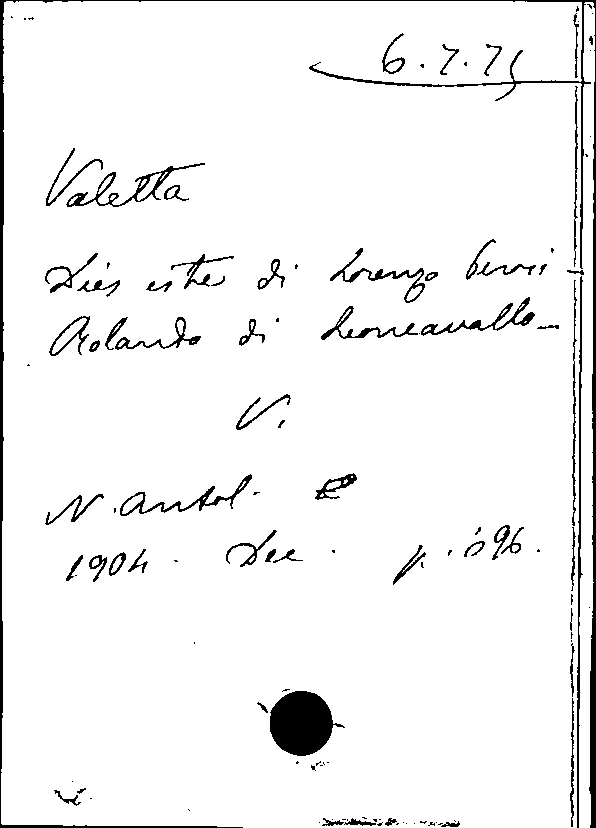 6.7.75
Valetta
Dies iste di Lorenzo Perosi -
Rolando di Leoncavallo -
V.
N. Antol.
1904. Dec. p. 596.